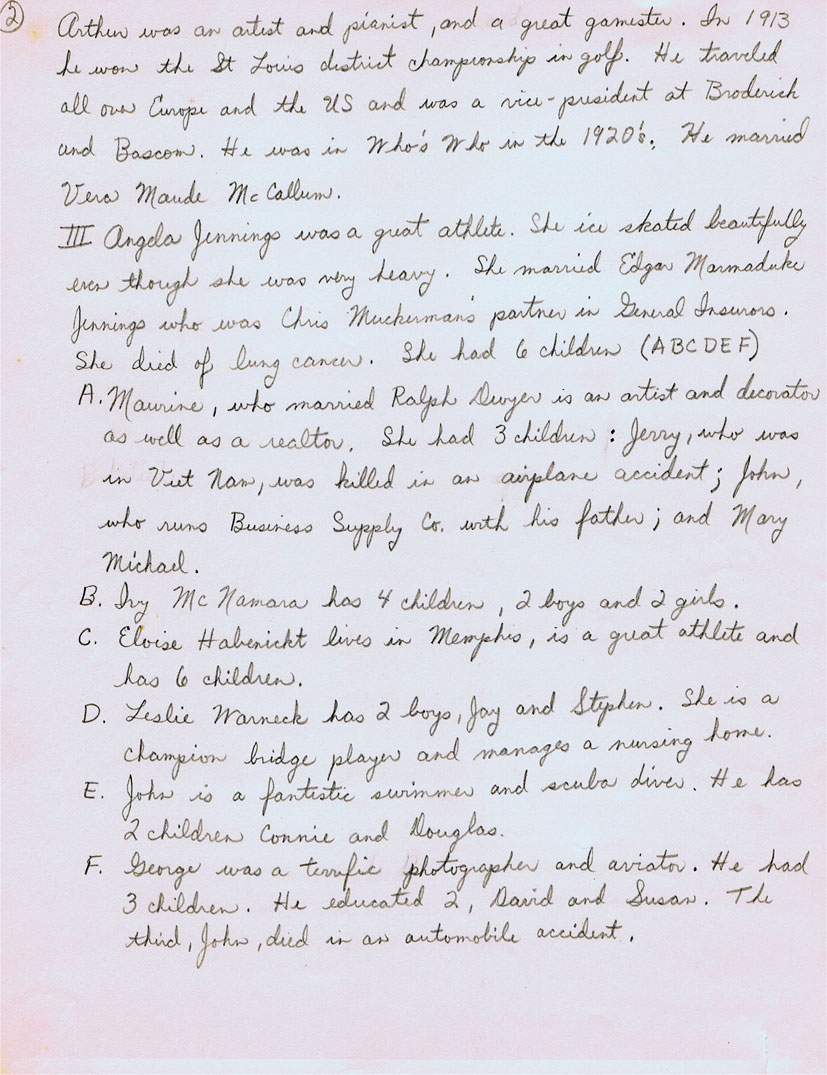 2
Arthur was an artist and pianist, and a great gamester. In 1913
he won the St Louis district championship in golf. He traveled
all over Europe and the US and was a vice-president at Broderick
and Bascom. He was in Who's Who in the 1920's. He married
Vera Maude McCallum.
III Angela Jennings was a great athlete. She ice skated beautifully
even though she was very heavy. She married Edgar Marmaduke
Jennings who was Chris Muckerman's partner in General Insurors.
She died of lung cancer. She had 6 children (ABCDEF)
A. Maurine, who married Ralph Dwyer is an artist and decorator
as well as a realtor. She had 3 children: Jerry, who was
in Viet Nam, was killed in an airplane accident; John,
who runs Business Supply Co. with his father; and Mary
Michael.
B. Ivy McNamara has 4 children, 2 boys and 2 girls.
C. Eloise Habenickt lives in Memphis, is a great athlete and
has 6 children.
D. Leslie Warneck has 2 boys, Jay and Stephen. She is a
champion bridge player and manages a nursing home.
E. John is a fantistic swimmer and scuba diver. He has
2 children Connie and Douglas.
F. George was a terrific photographer and aviator. He had
3 children. He educated 2, David and Susan. The
third, John, died in an automobile accident.